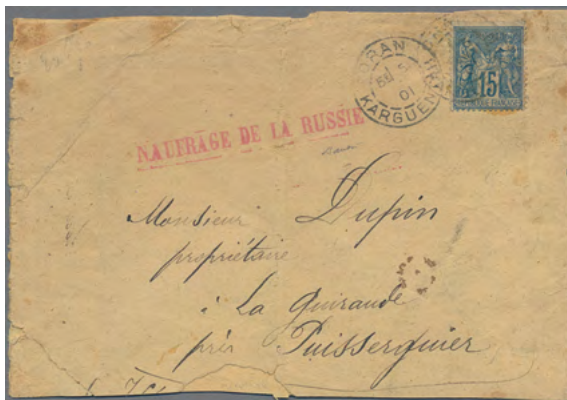 ORAN
5
01
KARGUEN
15
NAUFRAGE DE LA RUSSIE
Monsieur Dupin
propriétaire
à La Guiraude
près Puisserguier